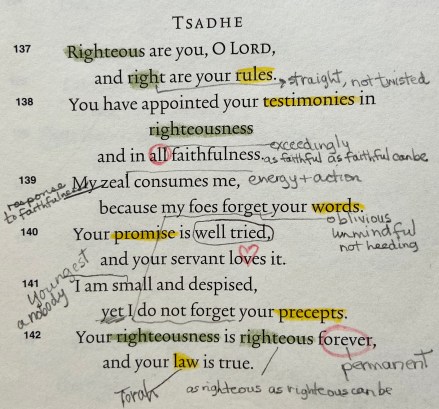 TSADHE
137 Righteous are you, O LORD,
and right are your rules. straight, not twisted
138 You have appointed your testimonies in
righteousness
exceedingly
and in all faithfulness. as faithful as faithful can be
139 My zeal consumes me, energy + action
response
to faithfulness
because my foes forget your words.
oblivious
unmindful
not heeding
140 Your promise is well tried,
and your servant loves it.
Youngest
a nobody
141 I am small and despised,
yet I do not forget your precepts.
142 Your righteousness is righteous forever,
permanent
and your law is true.
Torah
as righteous as righteous can be